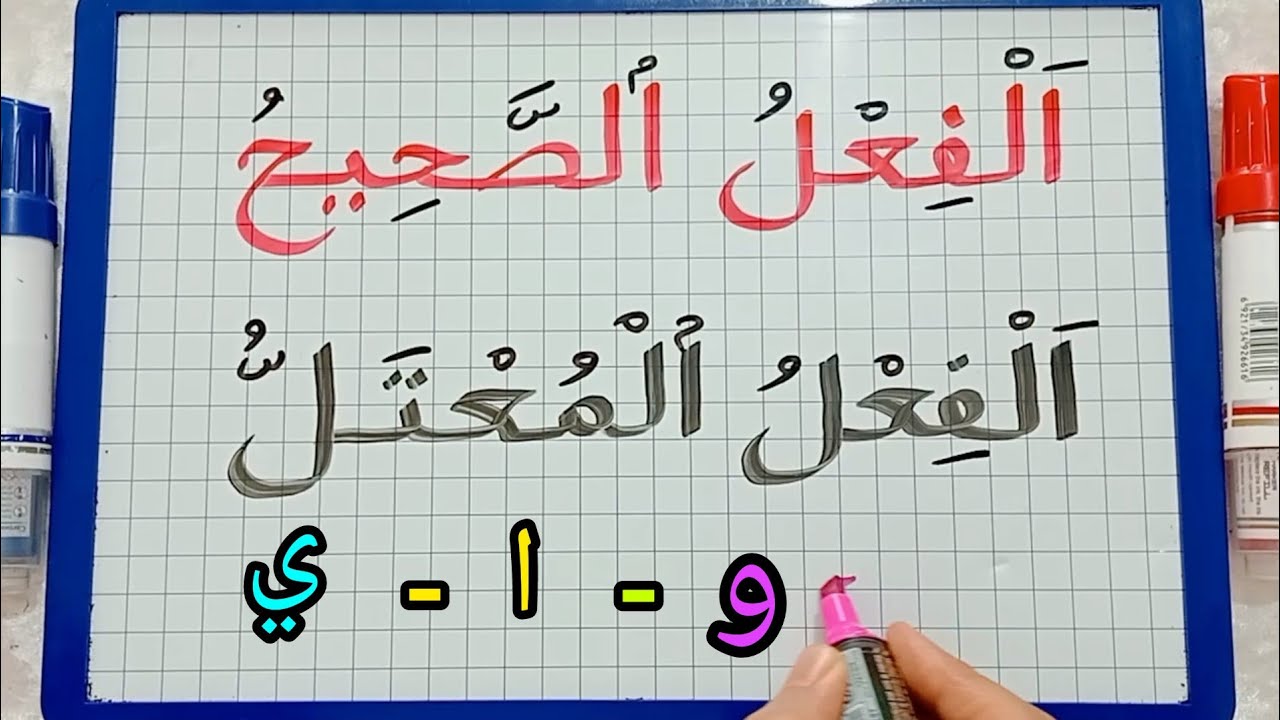 اَلْفِعْلُ ٱلصَّحِيحُ
اَلْفِعْلُ ٱلْمُعْتَلُّ
و - ا - ي